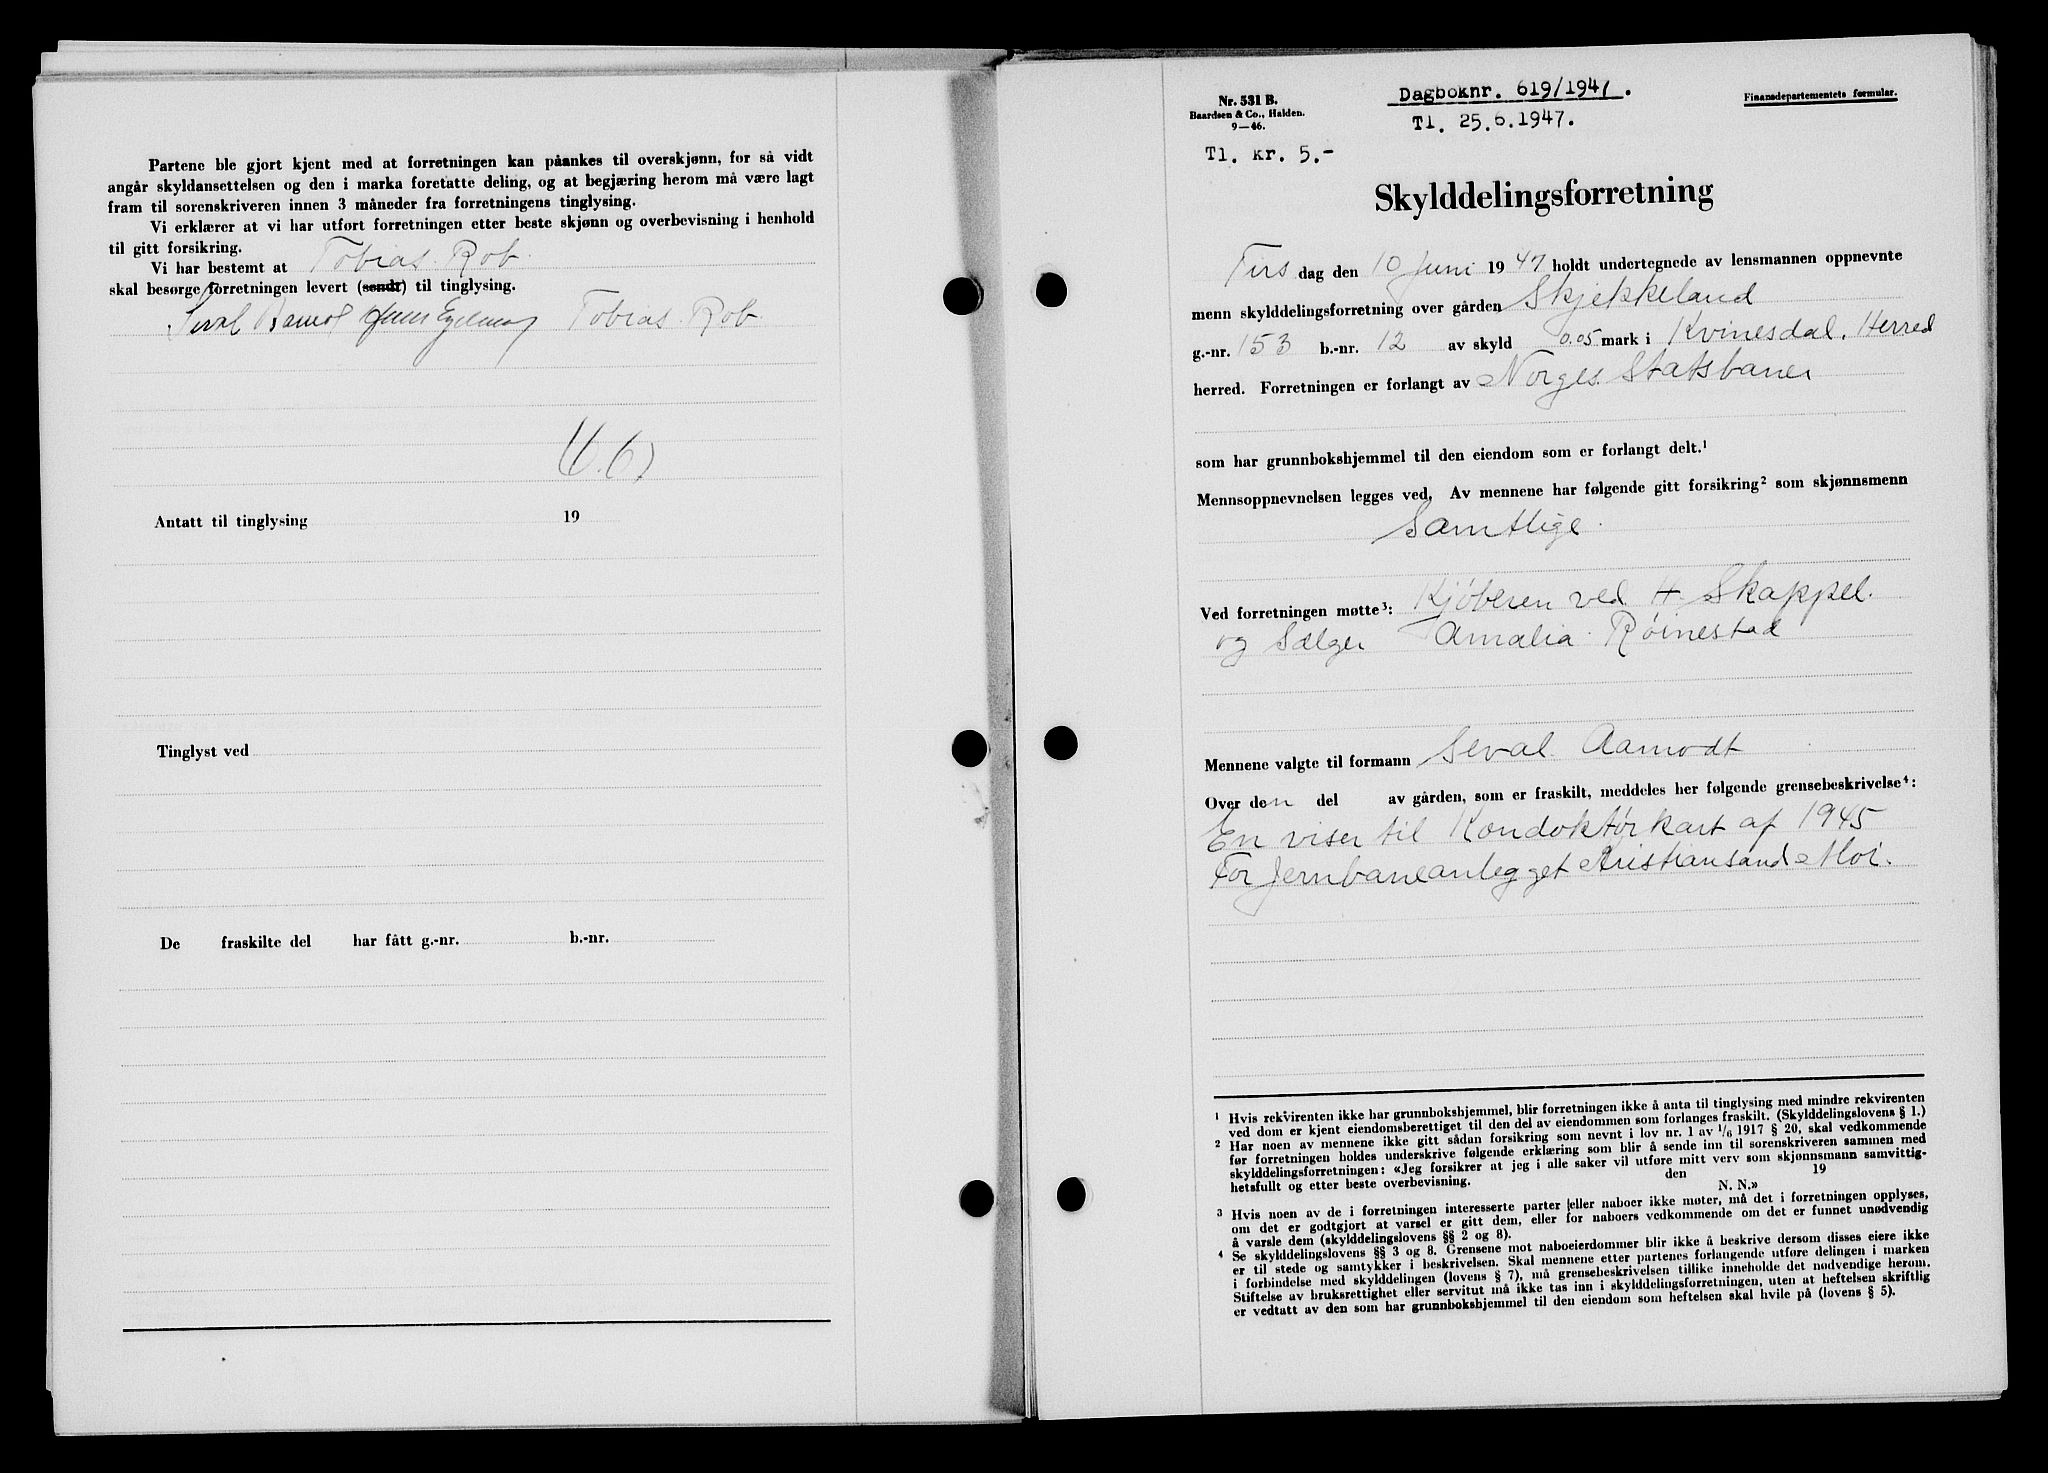 Partene ble gjort kjent med at forretningen kan påankes til overskjønn, for så vidt
angår skyldansettelsen og den i marka foretatte deling, og at begjæring herom må være lagt
fram til sorenskriveren innen 3 måneder fra forretningens tinglysing.
Vi erklærer at vi har utført forretningen etter beste skjønn og overbevisning i henhold
til gitt forsikring.
Vi har bestemt at Tobias Rob
skal besørge forretningen levert (sendt) til tinglysing.
Tobias Rob
Antatt til tinglysing 19
Tinglyst ved
De fraskilte del har fått g.-nr. b.-nr.
Nr. 531 B.
Baardsen & Co., Halden.
9—46.
Dagboknr. 619/1947.
Tl. 25.6.1947.
Finansdepartementets formular.
Tl. kr. 5.-
Skylddelingsforretning
Tirs dag den 10 Juni 1947 holdt undertegnede av lensmannen oppnevnte
menn skylddelingsforretning over gården Skjekkeland
g.-nr. 153 b.-nr. 12 av skyld 0.05 mark i Kvinesdal. Herred
herred. Forretningen er forlangt av Norges Statsbaner
som har grunnbokshjemmel til den eiendom som er forlangt delt.¹
Mennsoppnevnelsen legges ved. Av mennene har følgende gitt forsikring² som skjønnsmenn
Samtlige.
Ved forretningen møtte³: Kjøberen ved H. Skappel.
og Sælger Amalia Røinestad
Mennene valgte til formann Seval Aamodt
Over den del av gården, som er fraskilt, meddeles her følgende grensebeskrivelse⁴:
En viser til Kondoktørkart af 1945
For Jernbaneanlegget Kristiansand Moi.
¹ Hvis rekvirenten ikke har grunnbokshjemmel, blir forretningen ikke å anta til tinglysing med mindre rekvirenten
ved dom er kjent eiendomsberettiget til den del av eiendommen som forlanges fraskilt. (Skylddelingslovens § 1.)
² Har noen av mennene ikke gitt sådan forsikring som nevnt i lov nr. 1 av 1/6 1917 § 20, skal vedkommende
før forretningen holdes underskrive følgende erklæring som blir å sende inn til sorenskriveren sammen med
skylddelingsforretningen: «Jeg forsikrer at jeg i alle saker vil utføre mitt verv som skjønnsmann samvittig-
hetsfullt og etter beste overbevisning. den 19
N. N.»
³ Hvis noen av de i forretningen interesserte parter eller naboer ikke møter, må det i forretningen opplyses,
om det er godtgjort at varsel er gitt dem, eller for naboers vedkommende om det er funnet unødvendig
å varsle dem (skylddelingslovens §§ 2 og 8).
⁴ Se skylddelingslovens §§ 3 og 8. Grensene mot naboeierdommer blir ikke å beskrive dersom disses eiere ikke
er til stede og samtykker i beskrivelsen. Skal mennene etter partenes forlangende utføre delingen i marken
i forbindelse med skylddelingen (lovens § 7), må grensebeskrivelsen tillike inneholde det nødvendige herom.
Stiftelse av bruksrettighet eller servitut må ikke tas inn i skylddelingsforretningen, uten at heftelsen skriftlig
er vedtatt av den som har grunnbokshjemmel til den eiendom som heftelsen skal hvile på (lovens § 5).